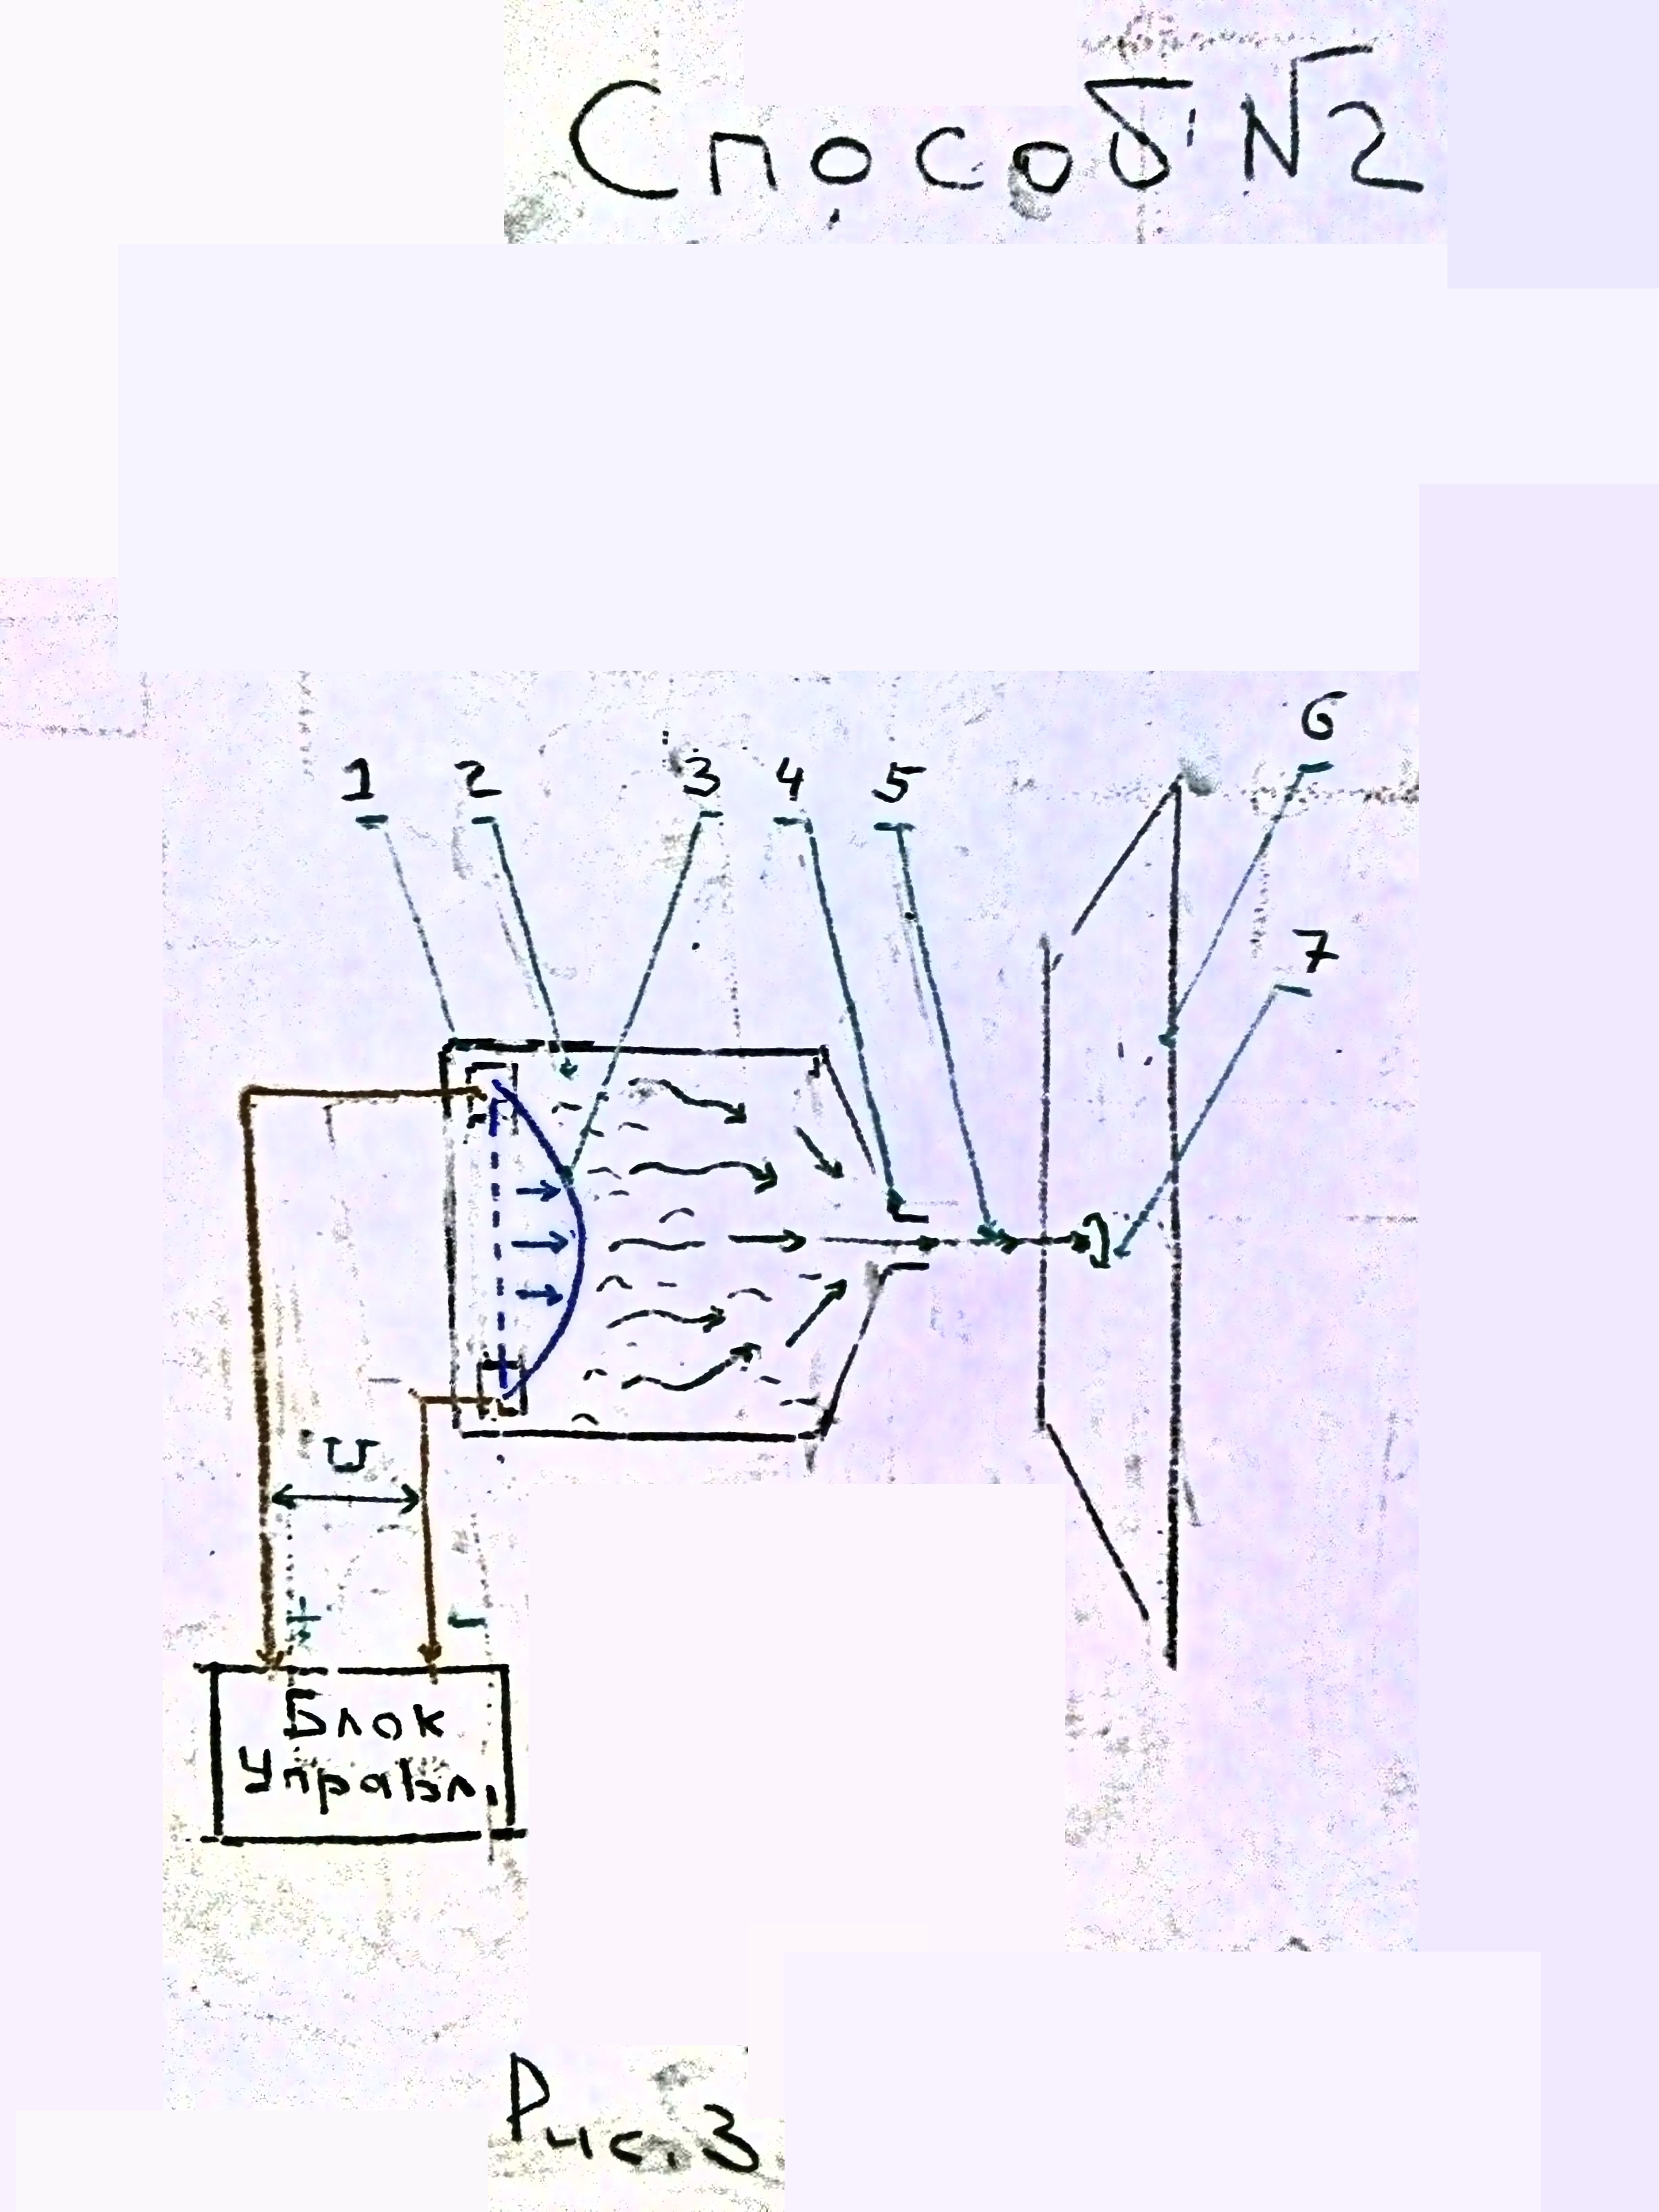 Способ №2
6
1 2 3 4 5
7
U
+ -
Блок
Управл.
Рис. 3